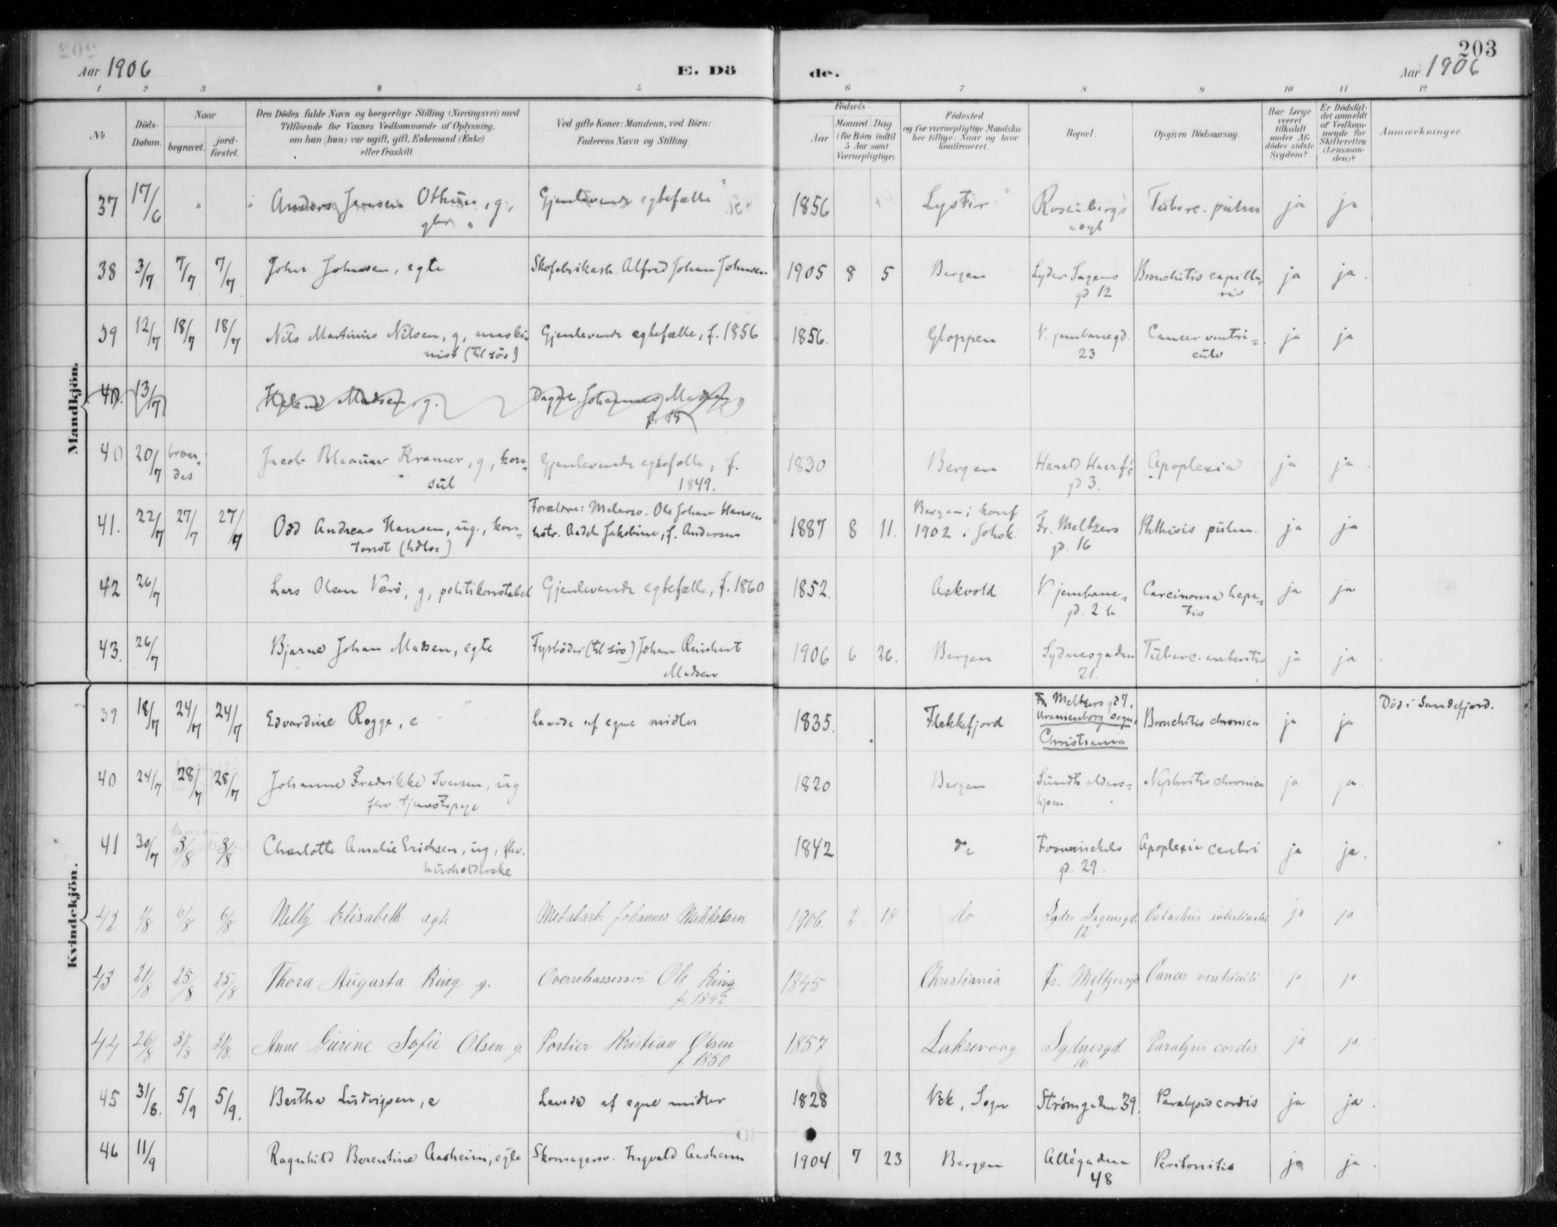 203
Aar 1906 E. Dö de. Aar 1906
1 2 3 4 5 6 7 8 9 10 11 12
No
Döds-Datum.
Naar begravet. jord-fæstet.
Den Dödes fulde Navn og borgerlige Stilling (Næringsvei) med Tilföiende for Voxnes Vedkommende af Oplysning, om han (hun) var ugift, gift, Enkemand (Enke) eller fraskilt.
Ved gifte Koner: Mandens, ved Börn: Faderens Navn og Stilling.
Födsels-
Aar Maaned Dag (for Börn indtil 5 Aar samt Vernepligtige).
Födested og for værnepligtige Mandskaber tillige: Naar og hvor konfirmeret.
Bopæl.
Opgiven Dödsaarsag.
Har Læge været tilkaldt under Afdödes sidste Sygdom?
Er Dödsfaldet anmeldt af Vedkommende for Skifteretten (Lensmanden)?
Anmærkninger.
Mandkjön.
37 17/6 Anders Jensen , g, Gjenlevende egtefælle 1856 Lyster Rosenbergs Tuberc. pulm ja ja
38 3/7 7/7 7/7 Johan Johnsen, egte Skofabrikarb. Alfred Johan Johnsen 1905 8 5 Bergen Lyder Sagens gd 12 Bronchitis capillaris ja ja.
39 12/7 18/7 18/7 Nils Martinus Nilsen, g, maskinist (til sös) Gjenlevende egtefælle, f. 1856 1856. Gloppen V. jernbanegd. 23 Cancer ventriculo ja ja
40. 13/7 Helene Madsen g. Dagarb. Johannes Madsen
40 20/7 brændes Jacob Blaauw Kramer, g, konsul Gjenlevende egtefælle, f. 1849. 1830 Bergen Harald Haarf. gd 3. Apoplexia ja ja
41. 22/7 27/7 27/7 Odd Andreas Hansen, ug., kontorist (hdls) Forældre: Ole Johan Hansen Jakobine, f. Andersen 1887 8 11. Bergen; konf 1902 i Johsk. Fr. Meltzers gd. 16 Phthisis pulm. ja ja
42 26/7 Lars Olsen Værö, g, politikonstabel Gjenlevende egtefælle, f. 1860 1852. Askvold V. jernbanegd. 26. Carcinoma hepatis ja ja
43. 26/7 Bjarne Johan Madsen, egte Fyrböder (til sös) Johan Reinhert Madsen 1906 6 26. Bergen Sydnesgaden 21. Tuberc. ja ja
Kvindekjön.
39 18/7 24/7 24/7 Edvardine Rogge, e Levede af egne midler 1835. Flekkefjord Fr. Meltzers gd 7, Uranienborg sogn, Christiania Bronchitis chronica ja ja Död i Sandefjord.
40 24/7 28/7 28/7 Johanne Fredrikke Iversen, ug fhv. tjenestepige 1820 Bergen Sundts aldershjem. Nephritis chronica ja ja.
41 30/7 3/8 3/8 Charlotte Amalie Erichsen, ug, fhv. husholderske 1842 do gd. 29. Apoplexia cerebri ja ja.
42 1/8 6/8 6/8 Nelly Elisabeth egte Metalarb. Johannes Mikkelsen 1906. 2. 18 do Lyder Sagensgd. 12 Catarhus intestinalis ja ja
43 21/8 25/8 25/8 Thora Augusta Ring g. Overretsassessor Ole Ring 1845 Christiania Fr. Meltzersgd Cancer ventriculi ja ja
44 26/8 31/8 31/8. Anne Gurine Sofie Olsen g Portier Kristian Olsen f. 1850 1857 Laksevaag Sydnesgd. 16 Paralysis cordis ja ja
45 31/8. 5/9 5/9. Bertha Ludvigsen, e Levede af egne midler 1828 Vik, Sogn Strömgaden 39. Paralysis cordis ja ja.
46 11/9 Ragnhild Berentine Aasheim, egte Skomagersv. Ingvald Aasheim 1904 7 23 Bergen Allégaden 48 Peritonitis ja ja.